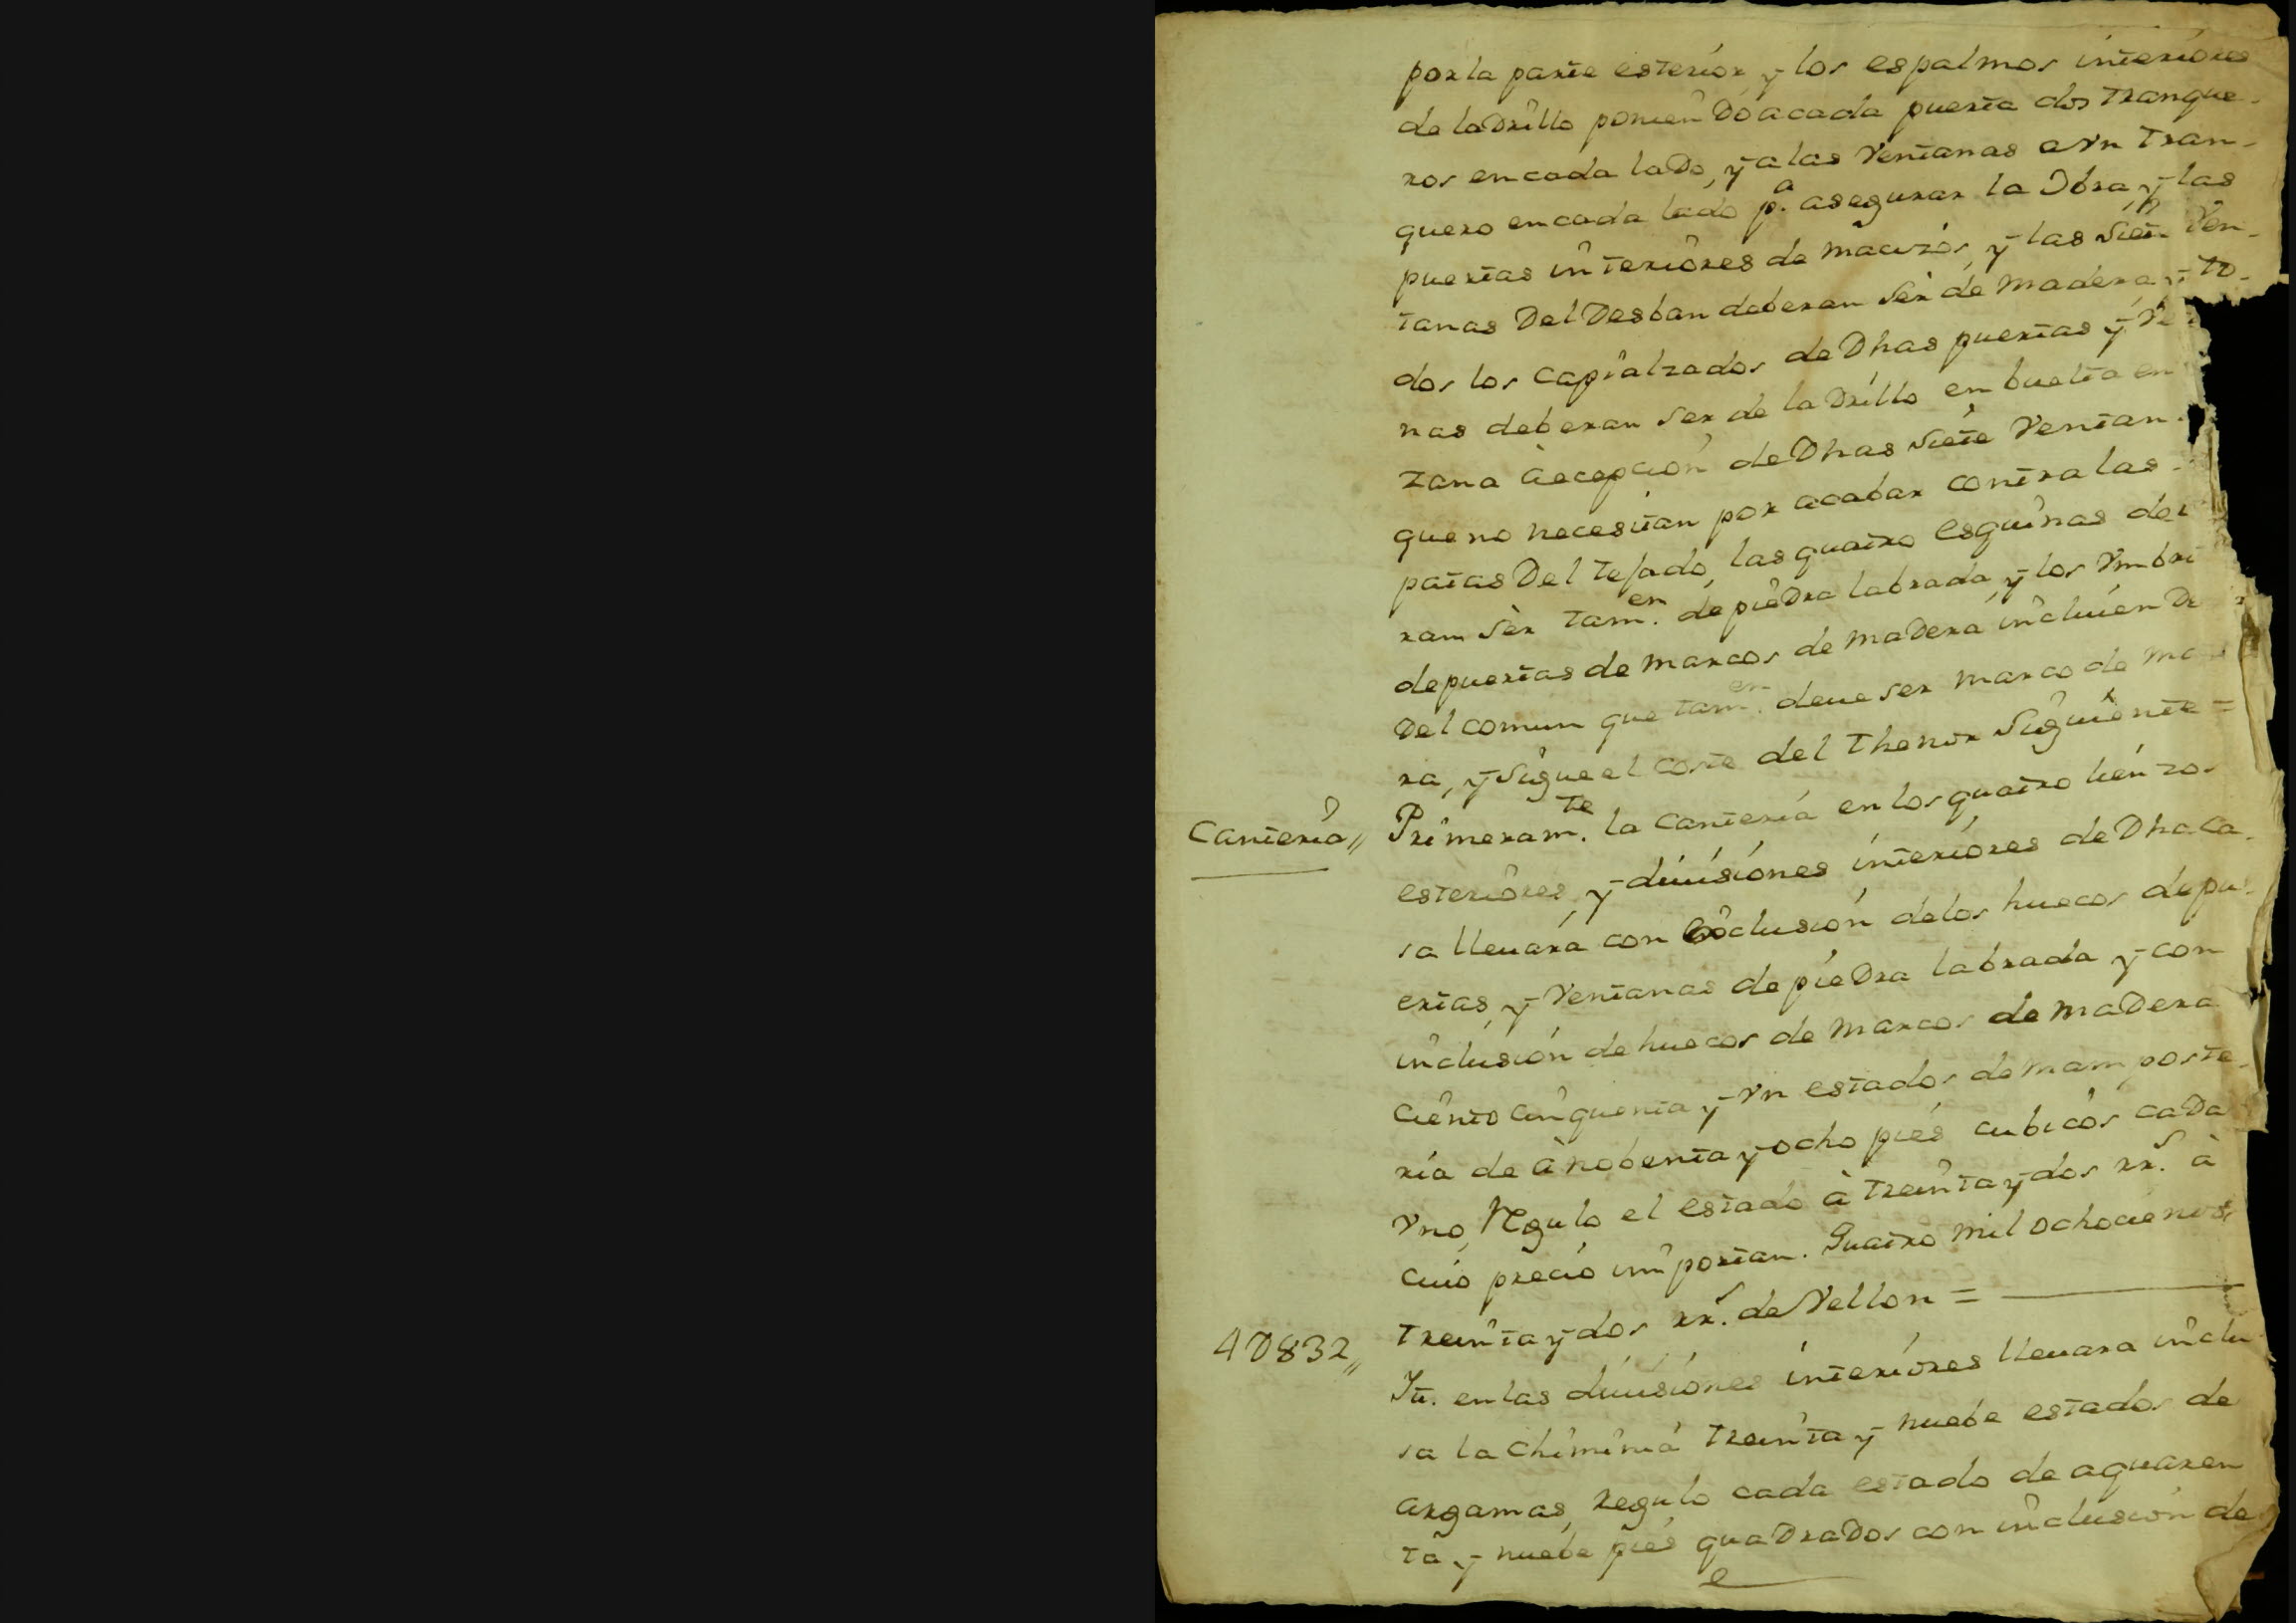 por la parte esterior y los espalmos interiores
de laDrillo ponienDo a cada puerta dos tranque-
ros en cada laDo, y a las Ventanas a Vn tran-
quero en cada lado p.a asegurar la Obra, y las
puertas interiores de macizos, y las siete Ven-
tanas Del Desban deberan ser de madera y to-
dos los capialzados de Dhas puertas y Ve
nas deberan ser de laDrillo en buelta en
zana à ecepcion de Dhas siete Ventan
que no necesitan por acabar contra las
patas Del tejado, las quatro esquinas de
ram sèr tam.en de pieDra labrada, y los Vmbra
de puertas de marcos de maDera incluienDo
Del comun que tam.en deue ser marco de ma
ra, y sigue el coste del thenor siguiente =
Canteria // Primeram.te la canteria en los quatro lienzos
esteriores, y diuisiones interiores de Dha ca-
sa lleuará con Esclusion de los huecos de pu-
ertas, y Ventanas de pieDra labrada y con
inclusion de huecos de marcos de maDera
ciento cinquenta y Vn estados de mamposte-
ria de à nobenta y ocho pies cubicos caDa
Vno, Regulo el estado à treinta y dos rr.s à
cuio precio importan. Quatro mil ochocientos
4D832 // treinta y dos rr.s de Vellon =
Itt. en las diuisiones interiores lleuara inclu
sa la chiminia treinta y nuebe estados de
argamas, regulo cada estado de a quaren
ta y nuebe pies quaDraDos con inclusion de